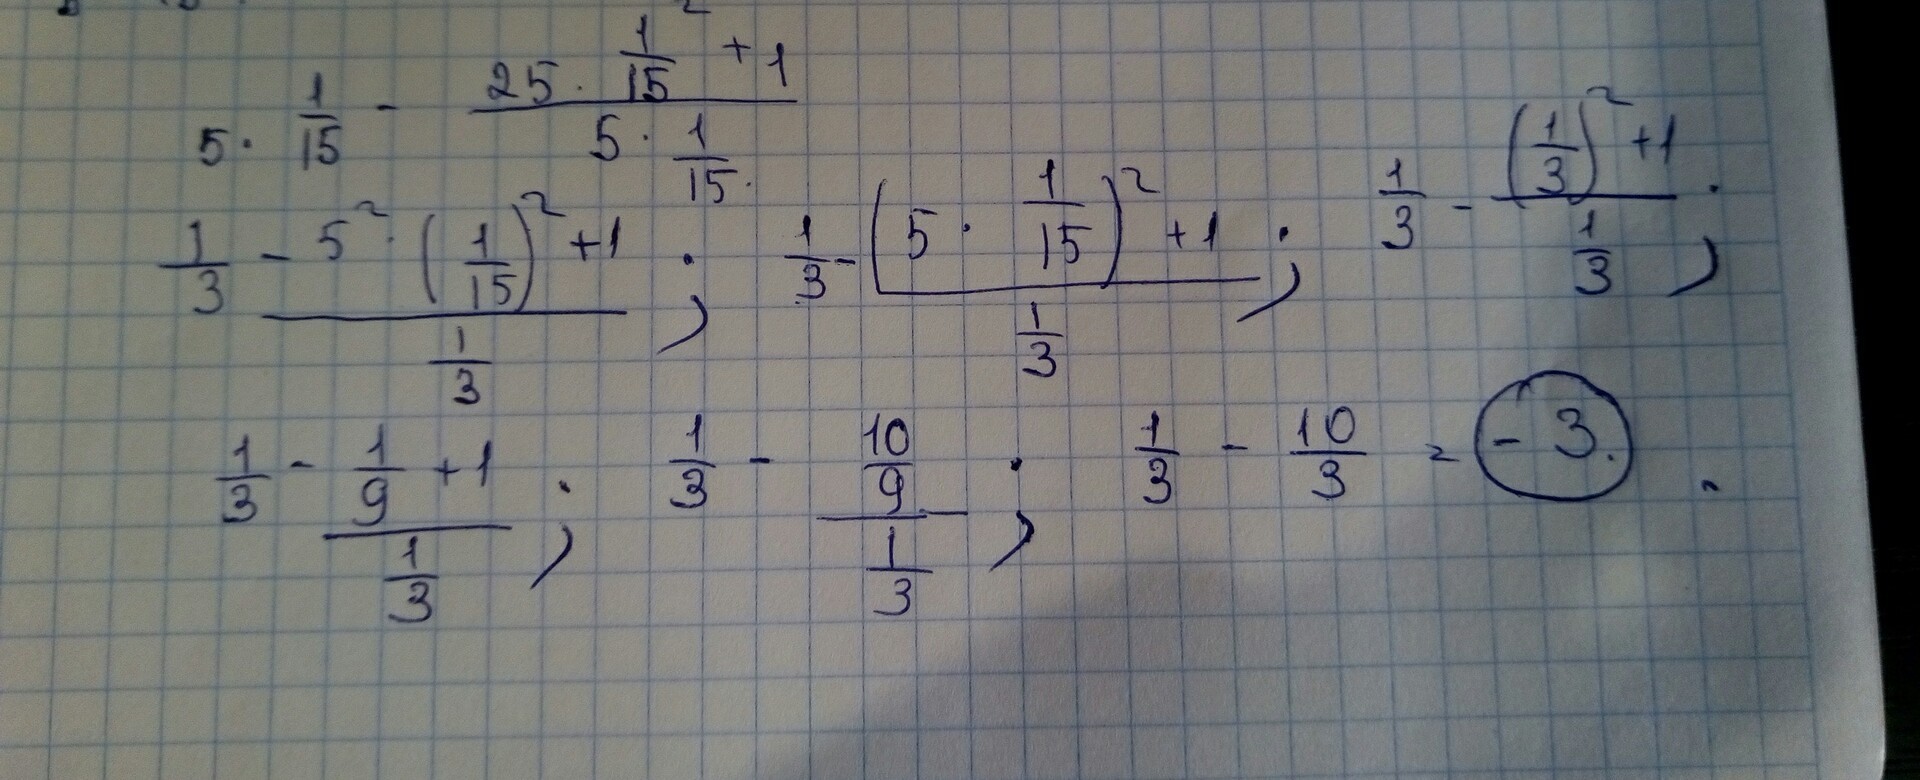 5 · 1/15 - (25 · 1/15² + 1)/(5 · 1/15).
1/3 - (5² · (1/15)² + 1)/(1/3) ; 1/3 - ((5 · 1/15)² + 1)/(1/3) ; 1/3 - ((1/3)² + 1)/(1/3) ;
1/3 - (1/9 + 1)/(1/3) ; 1/3 - (10/9)/(1/3) ; 1/3 - 10/3 = -3.